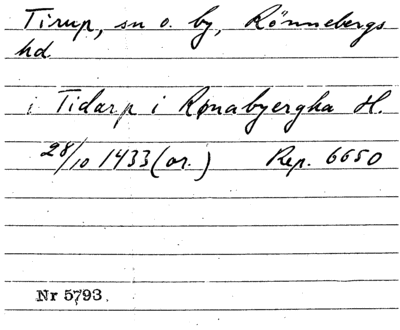 Tirup, sn o. by, Rönnebergs
hd
i Tidarp i Rønabyergha H.
28/10 1433 (or.) Rep. 6650
Nr 5793.